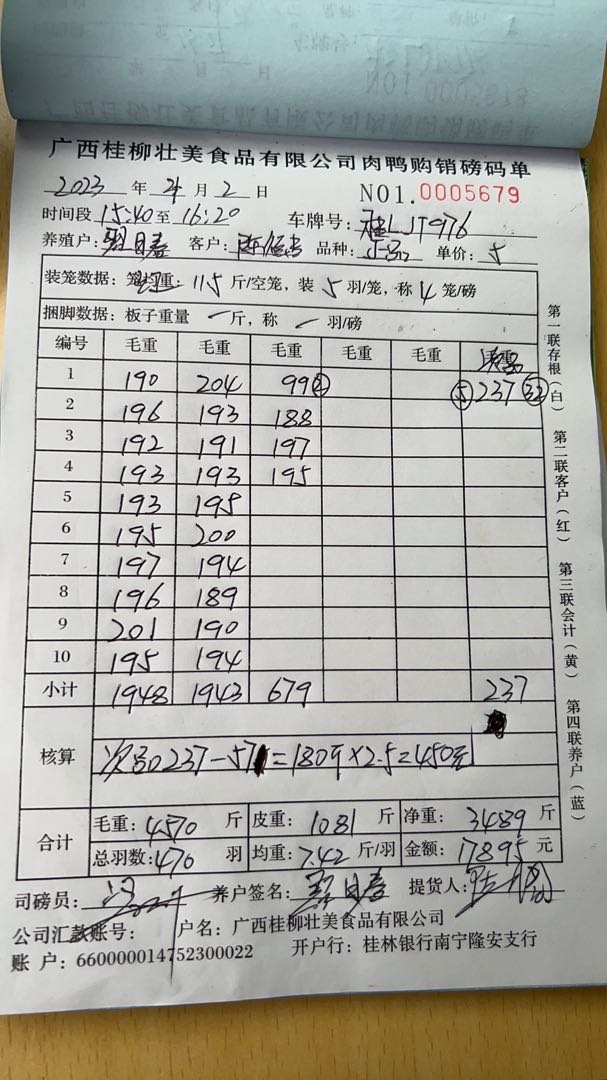 广西桂柳壮美食品有限公司肉鸭购销磅码单
2023 年 月 2 日 NO1.0005679
时间段 15:40 至 16:20 车牌号: 桂LJT976
养殖户: 日春 客户: 品种: 单价: 5
装笼数据: 笼重: 11.5 斤/空笼, 装 5 羽/笼, 称 4 笼/磅
捆脚数据: 板子重量 一 斤, 称 一 羽/磅
编号 毛重 毛重 毛重 毛重 毛重
1 190 204 99② ⑤237㉜
2 196 193 188
3 192 191 197
4 193 193 195
5 193 195
6 195 200
7 197 194
8 196 189
9 201 190
10 195 194
小计 1948 1943 679 237
核算 次品237-57=180斤×2.5=450元
合计 毛重: 4570 斤 皮重: 1081 斤 净重: 3489 斤
总羽数: 470 羽 均重: 7.42 斤/羽 金额: 17895 元
司磅员: 养户签名: 日春 提货人:
公司汇款账号: 户名: 广西桂柳壮美食品有限公司
账 户: 660000014752300022 开户行: 桂林银行南宁隆安支行
第一联存根(白) 第二联客户(红) 第三联会计(黄) 第四联养户(蓝)